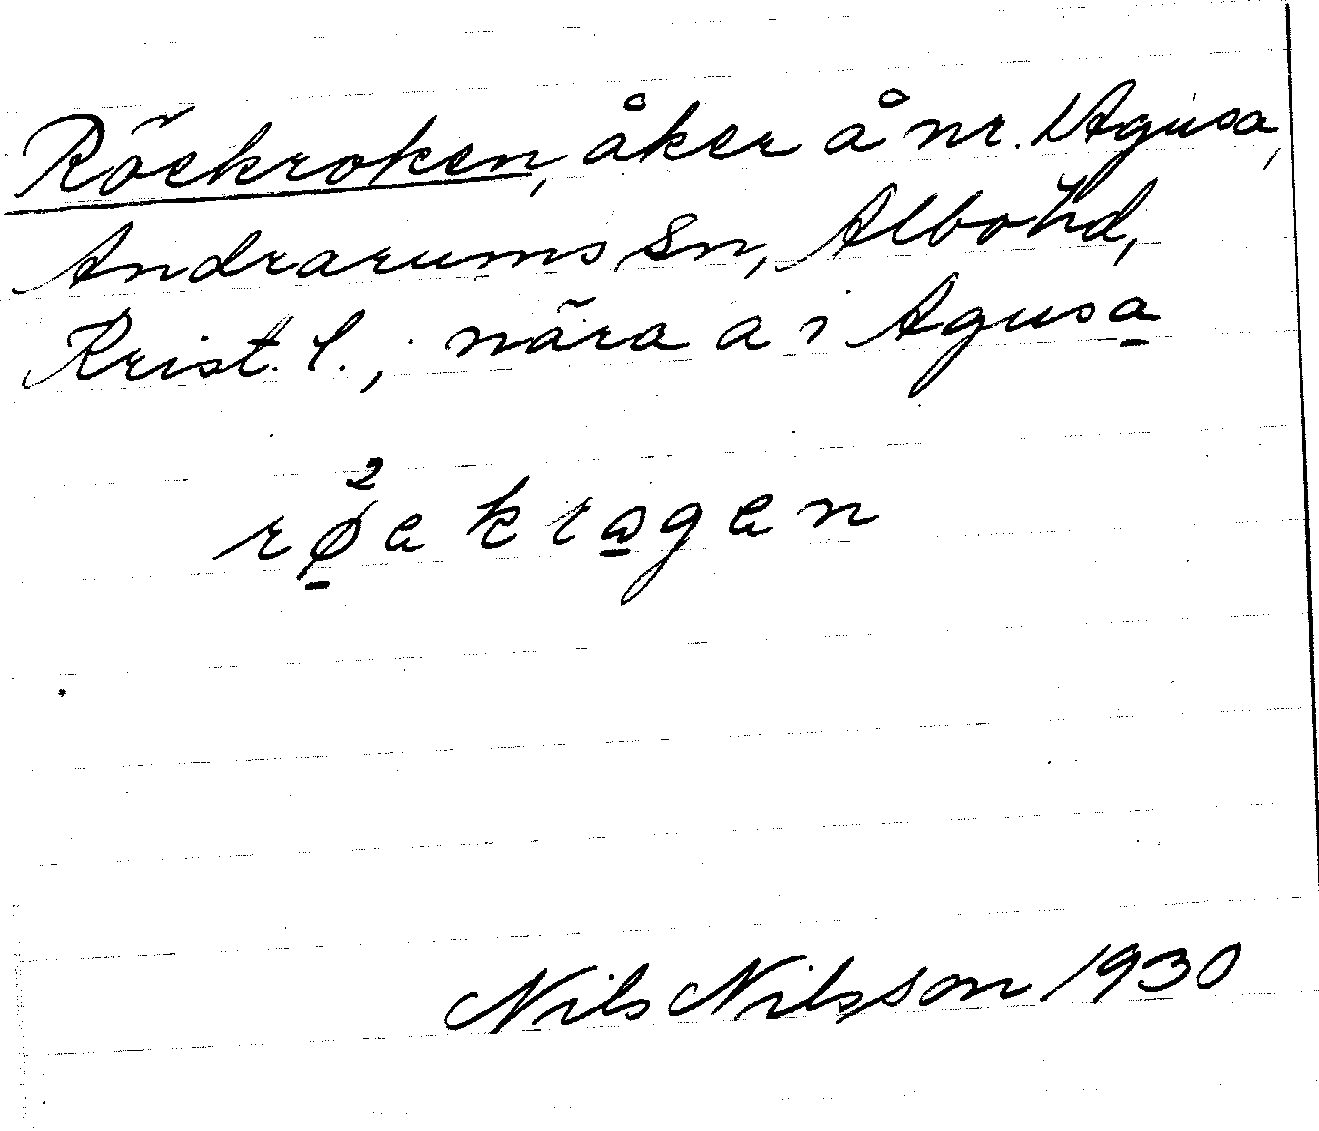 Röekroken, åker å nr. 1 Agusa,
Andrarums sn, Albo hd,
Krist. l., nära a i Agusa
rø²ekrogen
Nils Nilsson 1930